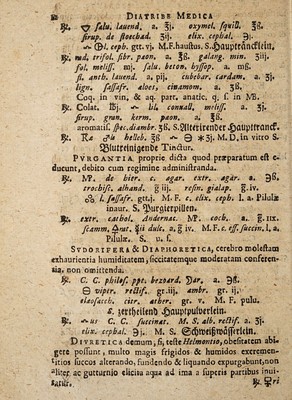 DIATRIBE MEDICA
℞. salv. lavend. a. ʒj. oxymel. squill. ʒß.
sirup. de stoechad. ʒij. elix. cephal. ℈j.
Ol. ceph. gtt. vj. M. F. haustus. S. Haupttråncklein.
℞. rad. trifol. fibr. paon. a. ʒß. galang. min. ʒiij.
fol. meliss. mj. salv. beton. hyssop. a. mß.
fl. anth. lavend. a. pij. cubebar. cardam. a. ʒj.
lign. sassafr. aloes, cinamom. a. ʒß.
Coq. in vin. & aq. part. anatic. q. s. in
℞. Colat. lilj. convall. meliss. a. ʒj.
sirup. gran. kerm. paon. a. ʒß.
aromatis. spec. diambr. ʒß. S. Alterirender Haupttranck.
℞. helleb. ʒß ʒj. M. D. in vitro S.
Blutreinigende Tinctur.
PURGANTIA proprie dicta quod præparatum est e-
ducunt, debito cum regimine administranda.
℞. de hier. c. agar. extr. agar. a. ℈ß.
trochisc. alhand. g iij. resin. gialap. g. iv.
l. sassafr. gtt. j. M. F. c. elix. ceph. l. a. Pilulæ
inaur. S. Purgierpillen.
℞. extr. cathol. Andernac. coch. a. g. iix.
scamm. dulc. a. g iv. M. F. c. ess. succin. l. a.
Pilulæ. S. u. s.
SUDORIFERA & DIAPHORETICA, cerebro molestam
exhaurientia humiditatem, siccitatemque moderatam conferen-
tia, non omittenda.
℞. C. C. philos. ppt. bezoard. a. ℈ß.
viper. rectif. gr. iij. ambr. gr. ij.
elæosacch. citr. æther. gr. v. M. F. pulv.
S. zertheilend Hauptpulverlein.
℞. C. C. succinat. M. S. alb. rectif. a. ʒj.
elix. cephal. ℈j. M. S. Schweißwåsserlein.
DIURETICA demum, si, teste Helmontio, obesitatem abi-
gere possunt, multo magis frigidos & humidos excremen-
titios succos alterando, fundendo & liquando expurgabunt, non
aliter ac gutturnio elicita aqua ad ima a superis partibus invi-
℞.